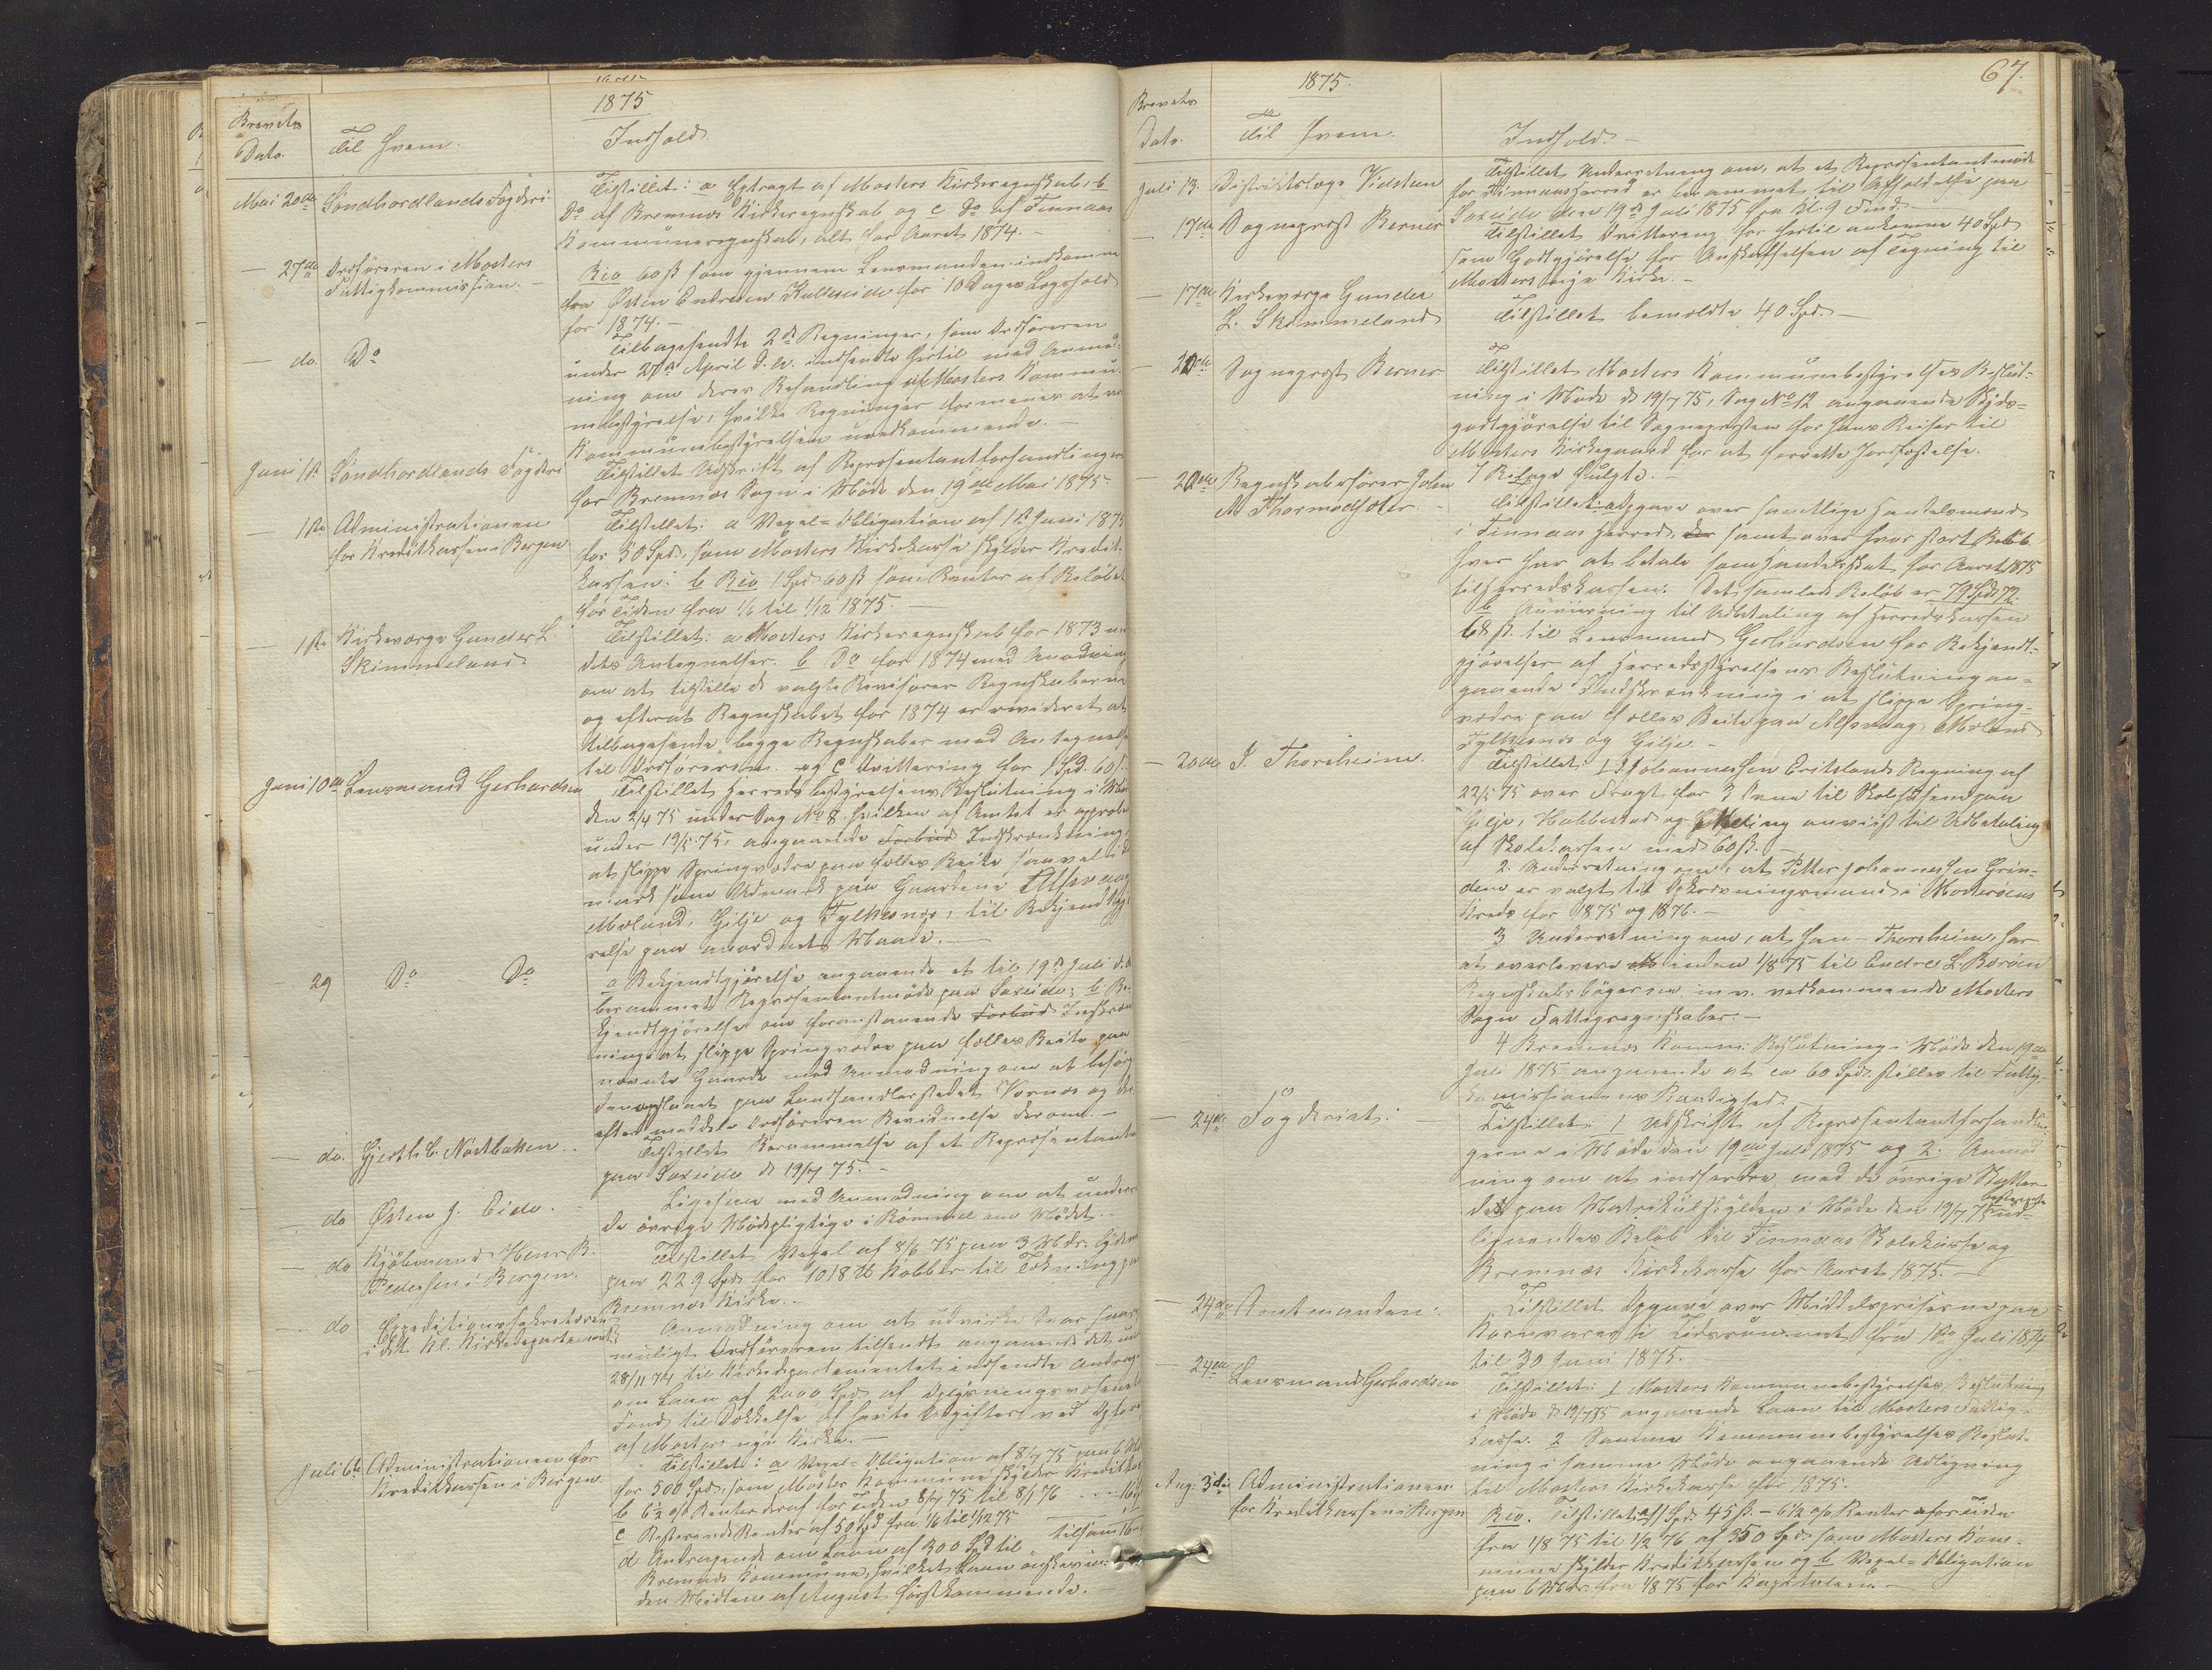 1875
Brevets
Dato.
Til Hvem.
Indhold
Mai 20de Søndhordlands Fogderi
Tilstillet: a Extragt af Mosters Kirkeregnskab, b
Do af Bremnes Kirkeregnskab og c Do af Finnaas
Kommuneregnskab, alt for Aaret 1874.
— 27de Ordføreren i Mosters
Fattigkommission.
Rio 60 ß som gjennem Lensmanden indkomm
fra Østen Endresen Kulleseide for 10 Dages Lægshold
for 1874.
— do. Do
Tilbagesendte 2de Regninger, som Ordføreren
under 27de April d. A. indsendte hertil med Anmod-
ning om deres Behandling af Mosters Kommu-
nebestyrelse, hvilke Regninger formenes at være
Kommunebestyrelsen uvedkommende.
Juni 1ste Søndhordlands Fogderi
Tilstillet Udskrift af Repræsentantforhandlinger
for Bremnes Sogn i Møde den 19de Mai 1875
— 1ste Administrationen
for Kreditkassen i Bergen
Tilstillet: a Vexel-Obligation af 1ste Juni 1875
for 50 Spd., som Mosters Kirkekasse skylder Kredit-
kassen: b Rio 1 Spd 60 ß som Renter af Beløbet
for Tiden fra 1/6 til 1/12 1875.
— 1ste Kirkeværge Gunder L.
Skimmeland.
Tilstillet: a Mosters Kirkeregnskab for 1873 m
dets Antegnelser. b Do for 1874 med Anodning
om at tilstille de valgte Revisorer Regnskaberne
og efterat Regnskabet for 1874 er revideret at
tilbagesende begge Regnskaber med Antegnelse
til Ordføreren. og c Kvittering for 1 Spd. 60 ß.
Juni 10de Lensmand Gerhardsen
Tilstillet Herredsbestyrelsens Beslutning i Møde
den 2/4 75 under Sag No 8. hvilken af Amtet er approb
under 19/5 75, angaaende Forbud Indskrænkning i
at slippe Springvædre paa fælles Beite saavel i
mark som Udmark paa Gaardene Alsvaag
Mæland, Gilje og Fylkesnæs, til Bekjendtgjø-
relse paa anordnet Maade.
— 29 Do Do
a Bekjendtgjørelse angaaende et til 19de Juli d. A.
berammet Repræsentantmøde paa Søreide; b Be-
kjendtgjørelse om foranstaaende Forbud Indskrænk
ning i at slippe Springvædre paa fælles Beite paa
nævnte Gaarde med Anmodning om at besørge
den opslaaet paa Landhandlerstedet Vornæs og der-
efter meddele Ordføreren Bevidnelse derom.
— do. Gjert H. C. Nordbakken.
Tilstillet Berammelse af et Repræsentantm
paa Søreide d 19/7 75.
— do Østen J. Eide.
Ligesaa med Anmodning om at underr
de øvrige Mødepligtige i Rømmel om Mødet.
— do Kjøbmand Henr. B.
Pedersen i Bergen.
Tilstillet Vexel af 8/6 75 paa 3 Mdr. lydende
paa 229 Spd for 1018 ℔ Kobber til Tækning paa
Bremnes Kirke.
— do Expeditionssekretæren
i det Kl. Kirkedepartement
Anmodning om at udvirke Svar snarest
muligt Ordføreren tilsendt angaaende det under
28/11 74 til Kirkedepartementet indsendte Andrag
om Laan af 2000 Spd af Oplysningsvæsenets
Fond til Dækkelse af havte Udgifter ved Opfør
af Mosters nye Kirke.
Juli 6te Administrationen for
Kreditkassen i Bergen.
Tilstillet: a Vexel-Obligation af 8/7 75 paa 6 Md
for 500 Spd., som Moster Kommune skylder Kreditkas
b 6½ o/o Renter deraf for Tiden 8/7 75 til 8/1 76 ... 16
c Resterende Renter af 50 Spd fra 1/6 til 1/12 75
tilsam 16
d Andragende om Laan af 300 Spd til
Bremnes Kommune, hvilket Laan ønskes in-
den Midten af August førstkommende.
67.
1875.
Brevets
Dato.
Til Hvem.
Indhold.
Juli 13. Distriktslæge Vidsteen
Tilstillet Underretning om, at et Repræsentantmøde
for Finnaasherred er berammet til Afholdelse paa
Søreide den 19de Juli 1875 fra Kl. 9 Fmd.
— 17de Sogneprest Berner
Tilstillet Kvittering for hertil ankomne 40 Spd
som Godtgjørelse for Anskaffelsen af Tegning til
Mosters nye Kirke.
— 17de Kirkeværge Gunder
L. Skimmeland
Tilstillet bemeldte 40 Spd.
— 20de Sogneprest Berner
Tilstillet Mosters Kommunebestyrelses Beslut-
ning i Møde d 19/7 75, Sag No 12 angaaende Skyds-
godtgjørelse til Sognepresten for hans Reiser til
Mosters Kirkegaard for at forrette Jordfæstelse.
7 Bilage fulgte.
— 20de Regnskabsfører John
M Thormodsæter.
Tilstillet: a Opgave over samtlige Handelsmænd
i Finnaas Herred, der samt over hvor stort Beløb
hver har at betale som Handelsskat for Aaret 1875
til Herredskassen. Det samlede Beløb er 79 Spd 72.
b Anvisning til Udbetaling af Herredskassen
68 ß. til Lensmand Gerhardsen for Bekjendt-
gjørelser af Herredsstyrelsens Beslutning an-
gaaende Indskrænkning i at slippe Spring-
vædre paa fælles Beite paa Alsvaag, Mæland
Fylkesnæs og Gilje.
— 20de J. Thorsheim.
Tilstillet: 1 J. Johannessen Eritslands Regning af
22/5 75 over Fragt for 3 Ovne til Skolehusene paa
Gilje, Hallestad og Gjelling anvist til Udbetaling
af Skolekassen med 60 ß.
2. Underretning om, at Petter Johannessen Grin-
dem er valgt til Opkrævningsmand i Mosterøens
Kreds for 1875 og 1876.
3 Underretning om, at han – Thorsheim, har
at overlevere inden 1/8 75 til Endre L. Børøen
Regnskabsbøgerne m. v. vedkommende Mosters
Sogn Fattigregnskaber.
4 Bremnes Komm: Beslutning i Møde den 19de
Juli 1875 angaaende at ca 60 Spd. stilles til Fattig-
komissionens Raadighed.
— 24de Fogderiet:
Tilstillet: 1 Udskrift af Repræsentantforhandlin-
gerne i Møde den 19de Juli 1875 og 2. Anmod
ning om at indfordre, med de øvrige Skatter
det paa Matrikulskylden i Møde den 19/7 75 bestemte ud-
lignendes Beløb til Finnaas Skolekasse og
Bremnes Kirkekasse for Aaret 1875.
— 24de Amtmanden:
Tilstillet Opgave over Middelspriserne paa
Kornvarer i Tidsrummet fra 1ste Juli 1874
til 30 Juni 1875.
— 24de Lensmand Gerhardsen
Tilstillet: 1 Mosters Kommunebestyrelses Beslutning
i Møde d 19/7 75 angaaende Laan til Mosters Fattig-
kasse. 2 Samme Kommunebestyrelses Beslut-
ning i samme Møde angaaende Udligning
til Mosters Kirkekasse for 1875.
Aug. 3die Administrationen
for Kreditkassen i Bergen
Rio. Tilstillet: a 11 Spd. 45 ß. – 6½ o/o Renter for Tiden
fra 1/8 75 til 1/2 76 af 350 Spd. som Mosters Kom-
mune skylder Kreditkassen og b Vexel-Obligation
paa 6 Mdr. fra 1/8 75 for Kapitalen.